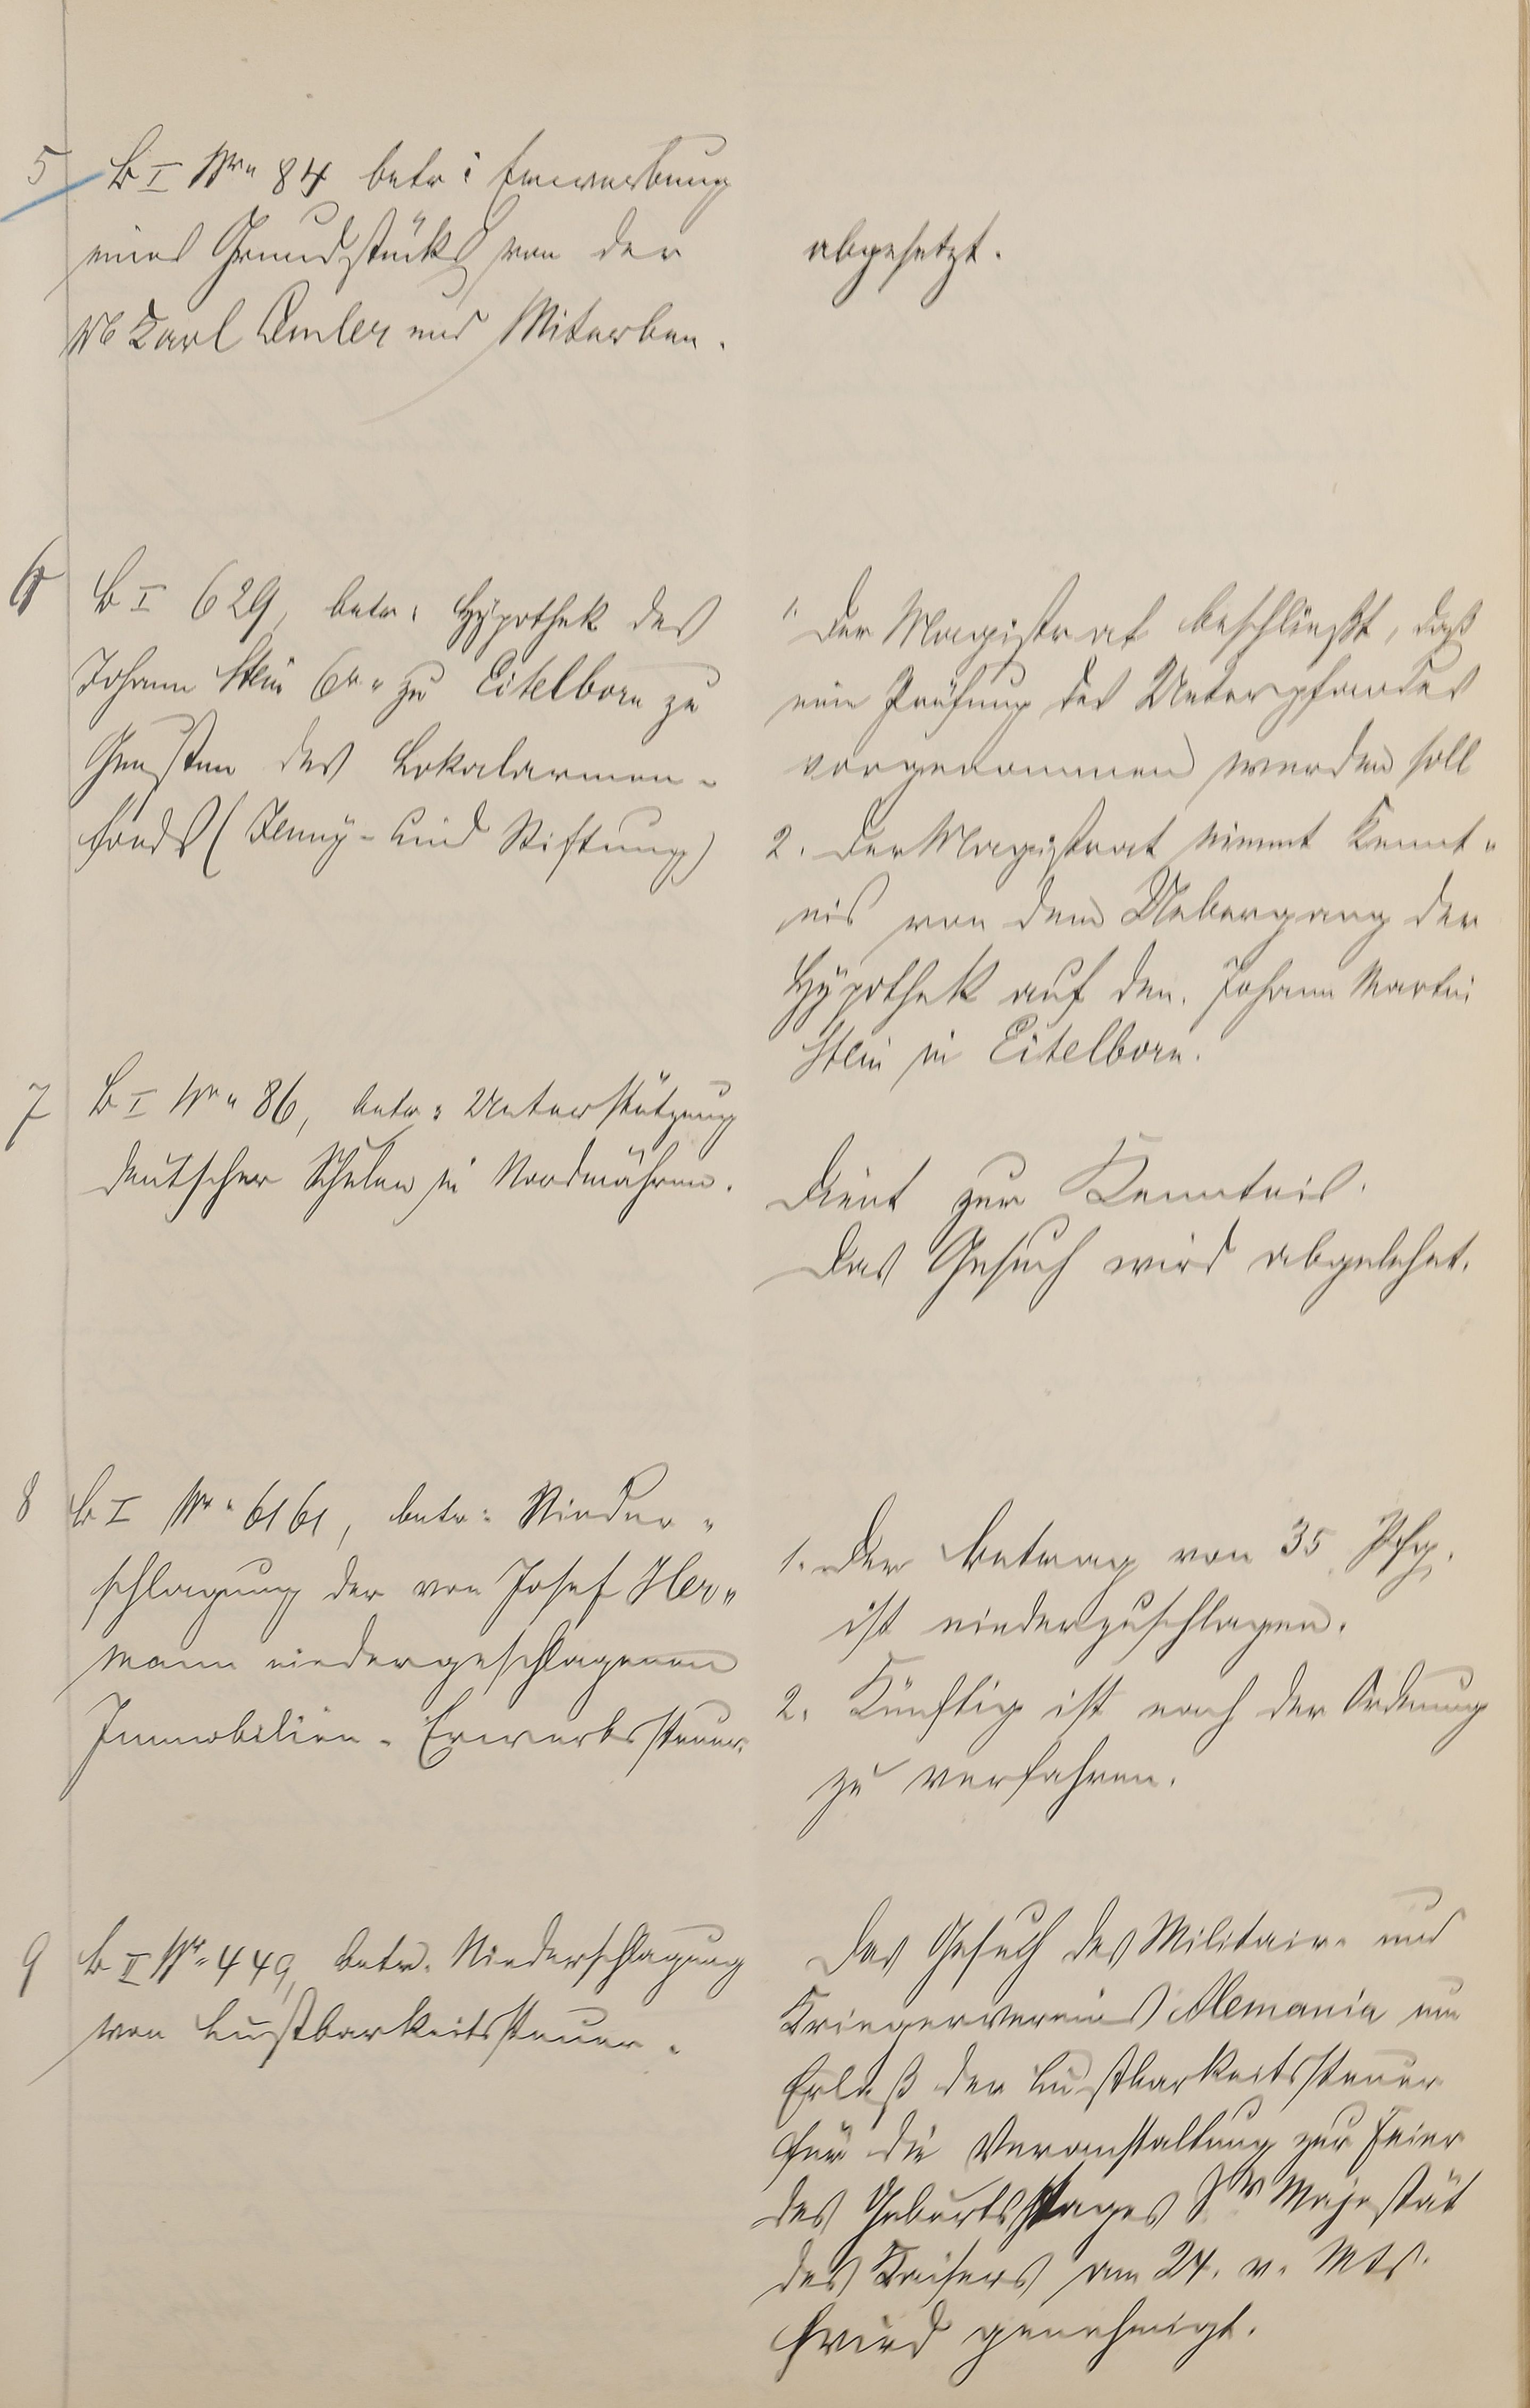 5 B I Nr. 84 betr: Erwerbung
eines Grundstücks von der
Karl und Miterben.
abgesetzt.
6 B I 629, betr: Hypothek des
Johann Stein 6r zu Eitelborn zu
Gunsten des Lokalarmen-
fonds (Jenny- Stiftung)
1. Der Magistrat beschließt, daß
eine Prüfung des Unterpfandes
vorgenommen werden soll
2. Der Magistrat nimmt Kennt-
nis von dem Uebergang der
Hypothek auf den Johann Martin
Stein in Eitelborn.
7 B I Nr. 86, betr: Unterstützung
deutscher Schulen in Nordmähren.
Dient zur Kenntnis.
Das Gesuch wird abgelehnt.
8 B I Nr. 6161, betr: Nieder-
schlagung der von Josef Her-
mann niedergeschlagenen
Immobilien-Erwerbssteuer.
1. Der Betrag von 35 Pfg.
ist niederzuschlagen.
2. Künftig ist nach der Ordnung
zu verfahren.
9 B II Nr. 449, betr. Niederschlagung
von Lustbarkeitssteuer.
Das Gesuch des Militair- und
Kriegervereins Alemania um
Erlaß der Lustbarkeitssteuer
für die Veranstaltung zur Feier
des Geburtstages Sr Majestät
des Kaisers am 24. v. Mts.
wird genehmigt.